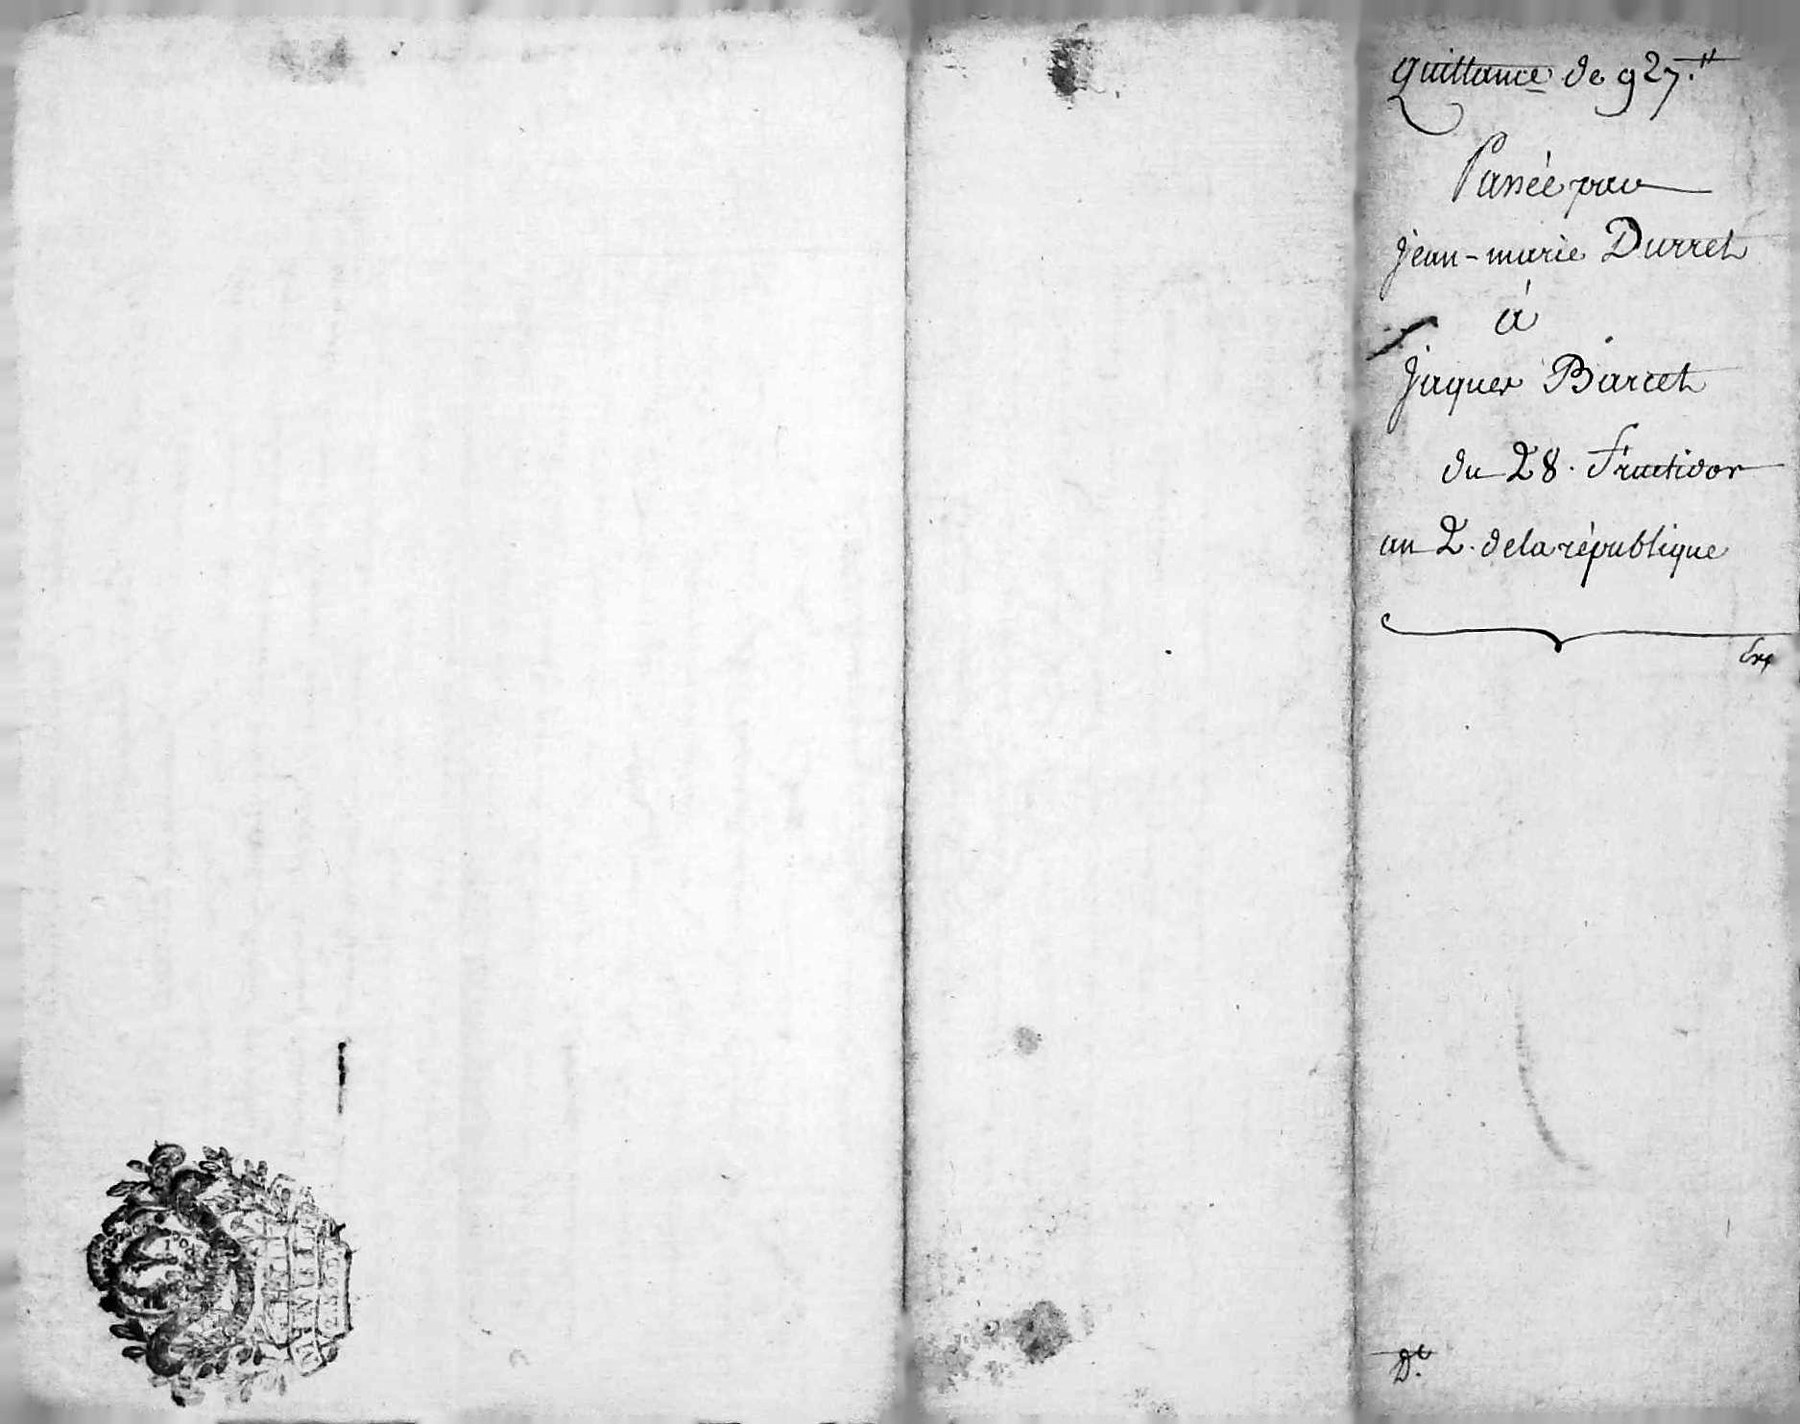 quittance de 927.ₗₜ
Passée par
jean-marie Durret
à
Jaques Barcet
du 28. Fructidor
an 2. de la république
D.t